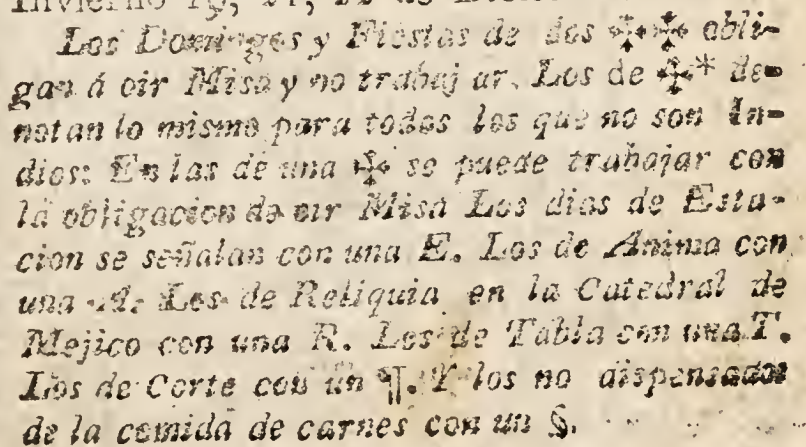 Los Domingos y Fiestas de dos ✠✠ obli-
gan á oir Misa y no trabaj ar. Los de ✠* de-
notan lo mismo para todos los que no son In-
dios: En las de una ✠ se puede trabajar con
la obligacion de oir Misa Los dias de Esta-
cion se señalan con una E. Los de Anima con
una A. Los de Reliquia en la Catedral de
Mejico con una R. Los de Tabla con una T.
Los de Corte con un ¶. Y los no dispensados
de la comida de carnes con un §.